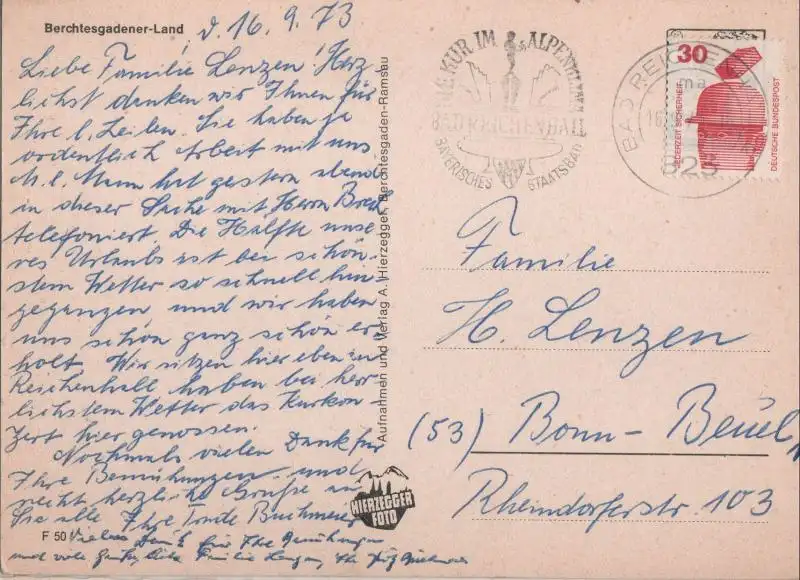 Berchtesgadener-Land
d. 16.9.73
Liebe Familie Lenzen! Herz-
lichst danken wir Ihnen für
Ihre l. Zeilen. Sie haben ja
ordentlich Arbeit mit uns
M. l. Mann hat gestern abend
in dieser Sache mit Herrn
telefoniert. Die Hälfte unse
res Urlaubs ist bei schön-
stem Wetter so schnell hin-
gegangen und wir haben
uns schon ganz schön er-
holt. Wir sitzen hier eben in
Reichenhall haben bei herr-
lichstem Wetter das Kurkon-
zert hier genossen.
Nochmals vielen Dank für
Ihre Bemühungen und
recht herzliche Grüße an
Sie alle Ihre Trude Buchmeier
F 50
Vielen Dank für Ihre Bemühungen
und viele Grüße, liebe Familie Lenzen, Ihr
Aufnahmen und Verlag A. Hierzegger, Berchtesgaden-Ramsau
HIERZEGGER
FOTO
KUR IM ALPENKLIMA
BAD REICHENHALL
BAYERISCHES STAATSBAD
BAD REICHENHALL
ma
825
30
JEDERZEIT SICHERHEIT
DEUTSCHE BUNDESPOST
Familie
H. Lenzen
(53) Bonn-Beuel,
Rheindorferstr. 103